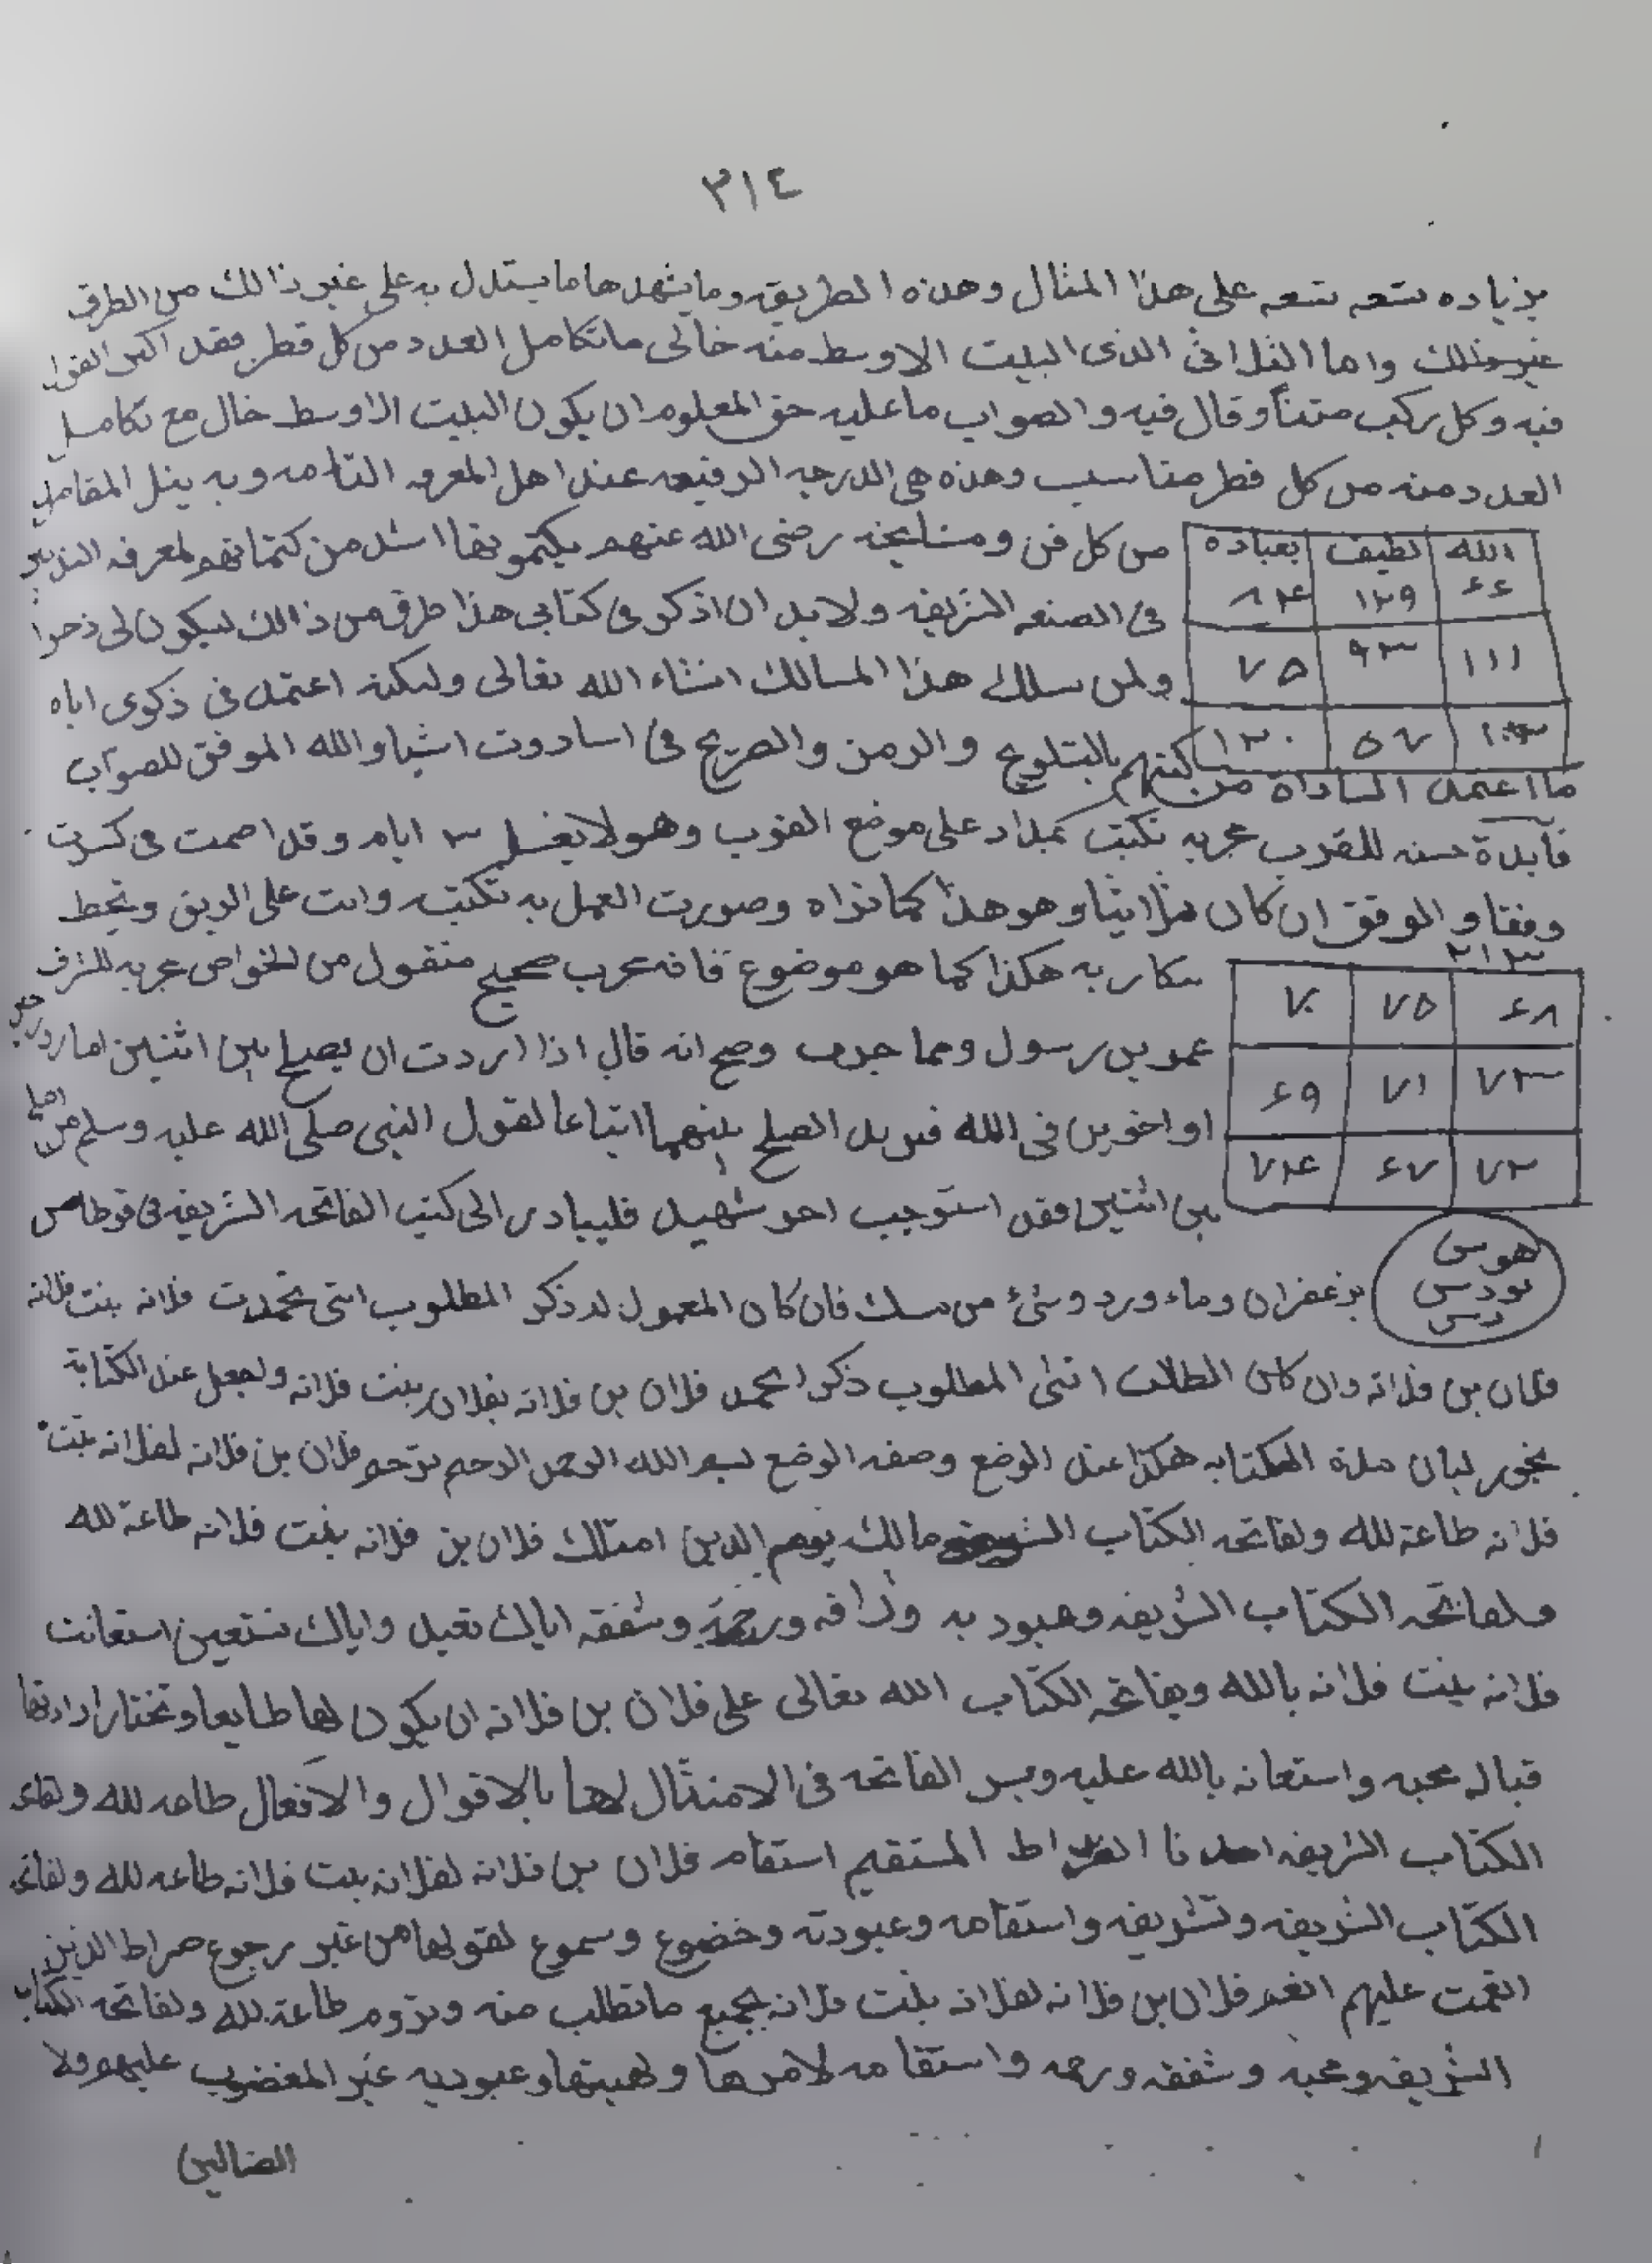 ٣١٤
بزياده سته سته على هذا المثال وهذه الطريقه وما يشهدها ما يستدل به على غير ذالك من الطرق
غير ذللك واما الثلاثى الذى البيت الاوسط منه خالى ما تكامل العدد من كل قطر فقد اكثر القول
فيه وكل ركب متناً وقال فيه والصواب ما عليه حق المعلوم ان يكون البيت الاوسط خال مع تكامل
العدد منه من كل قطر مناسب وهذه هى الدرجه الرفيعه عند اهل المعرفه التامه وبه ينل المقامل
من كل فن ومشايخنه رضى الله عنهم يكتمونها اشد من كتمانهم لمعرفه التدبير
الله لطيف بعباده
٦٦ ١٢٩ ٨٤
فى الصنعه الشريفه ولابد ان اذكر فى كتابى هذا طرق من ذالك ليكون لى ذخرا
١١١ ٩٣ ٧٥
ولمن سلك هذا المسالك انشاء الله تعالى ولكنه اعتمد فى ذكرى اياه
١٠٢ ٥٧ ١٢٠
بالتلويح والرمز والصريح فى اسا دوت اشيا والله الموفق للصواب
ما اعتمد الساداة من كتمهم
فآيدة حسنه للقرب مجربه تكتب بمداد على موضع القوب وهو لا يغسل ٣ ايام وقد اصمت فى كسرت
وفقا والموفق ان كان ثلاثيا وهو هذا كما تراه وصورت العمل به تكتب وانت على الريق وتحط
٢١٣
سكار به هكذا كما هو موضوع فانه مجرب صحيح منقول من الخواص مجربه للشرف
٦٨ ٧٥ ٧٠
عمر بن رسول ومما جرب وصح انه قال اذا اردت ان يصلح بين اثنين اما زوجين
٧٣ ٧١ ٦٩
او اخوين فى الله فيريد الصلح بينهما اتباعا لقول النبى صلى الله عليه وسلم من اصلح
٧٢ ٦٧ ٧٤
بين اثنين فقد استوجب اجر شهيد فليبادر الى كتب الفاتحه الشريفه فى قرطاس
هوس
بودس
دس
بزعفران وماء ورد وشئ من مسك فان كان المعمول له ذكر المطلوب انثى تحمدت فلانه بنت فلانه
فلان بن فلانه وان كان الطالب انثى المطلوب ذكرا يحمد فلان بن فلانه بفلان بنت فلانه ولجعل عند الكتابة
بخور لبان مدة الكتابه هكذا عند الوضع وصفه الوضع بسم الله الرحمن الرحيم ترحم فلان بن فلانه لفلانه بنت
فلانه طاعة لله ولفاتحه الكتاب الشريفه مالك يوم الدين امتلك فلان بن فلانه بنت فلانه طاعة لله
ولفاتحه الكتاب الشريفه وعبوديه ورافه ورحمة وشفقه اياك نعبد واياك نستعين استعانت
فلانه بنت فلانه بالله وبفاتحه الكتاب الله تعالى على فلان بن فلانه ان يكون لها طايعا وتختار ارادتها
قباله محبه واستعانه بالله عليه وبسر الفاتحه فى الامتثال لها بالاقوال والافعال طاعه لله ولفاتحه
الكتاب الشريفه اهدنا الصراط المستقيم استقام فلان بن فلانه لفلانه بنت فلانه طاعه لله ولفاتحه
الكتاب الشريفه وتشريفه واستقامه وعبودته وخضوع وسموع لقولها من غير رجوع صراط الذين
انعمت عليهم انعم فلان بن فلانه لفلانه بنت فلانه بجميع ما تطلب منه وتروم طاعة لله ولفاتحه الكتاب
الشريفه ومحبه وشفقه ورحمه واستقامه لامرها ولهيبتها وعبوديه غير المغضوب عليهم ولا
الضالين